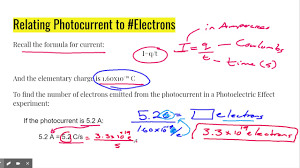 Relating Photocurrent to #Electrons
Recall the formula for current:
I=q/t
I = q/t
in Amperes
Coulombs
time (s)
And the elementary charge is 1.60x10⁻¹⁹ C
To find the number of electrons emitted from the photocurrent in a Photoelectric Effect
experiment:
If the photocurrent is 5.2 A:
5.2 A = 5.2 C/s =
electrons
3.3x10¹⁹ electrons